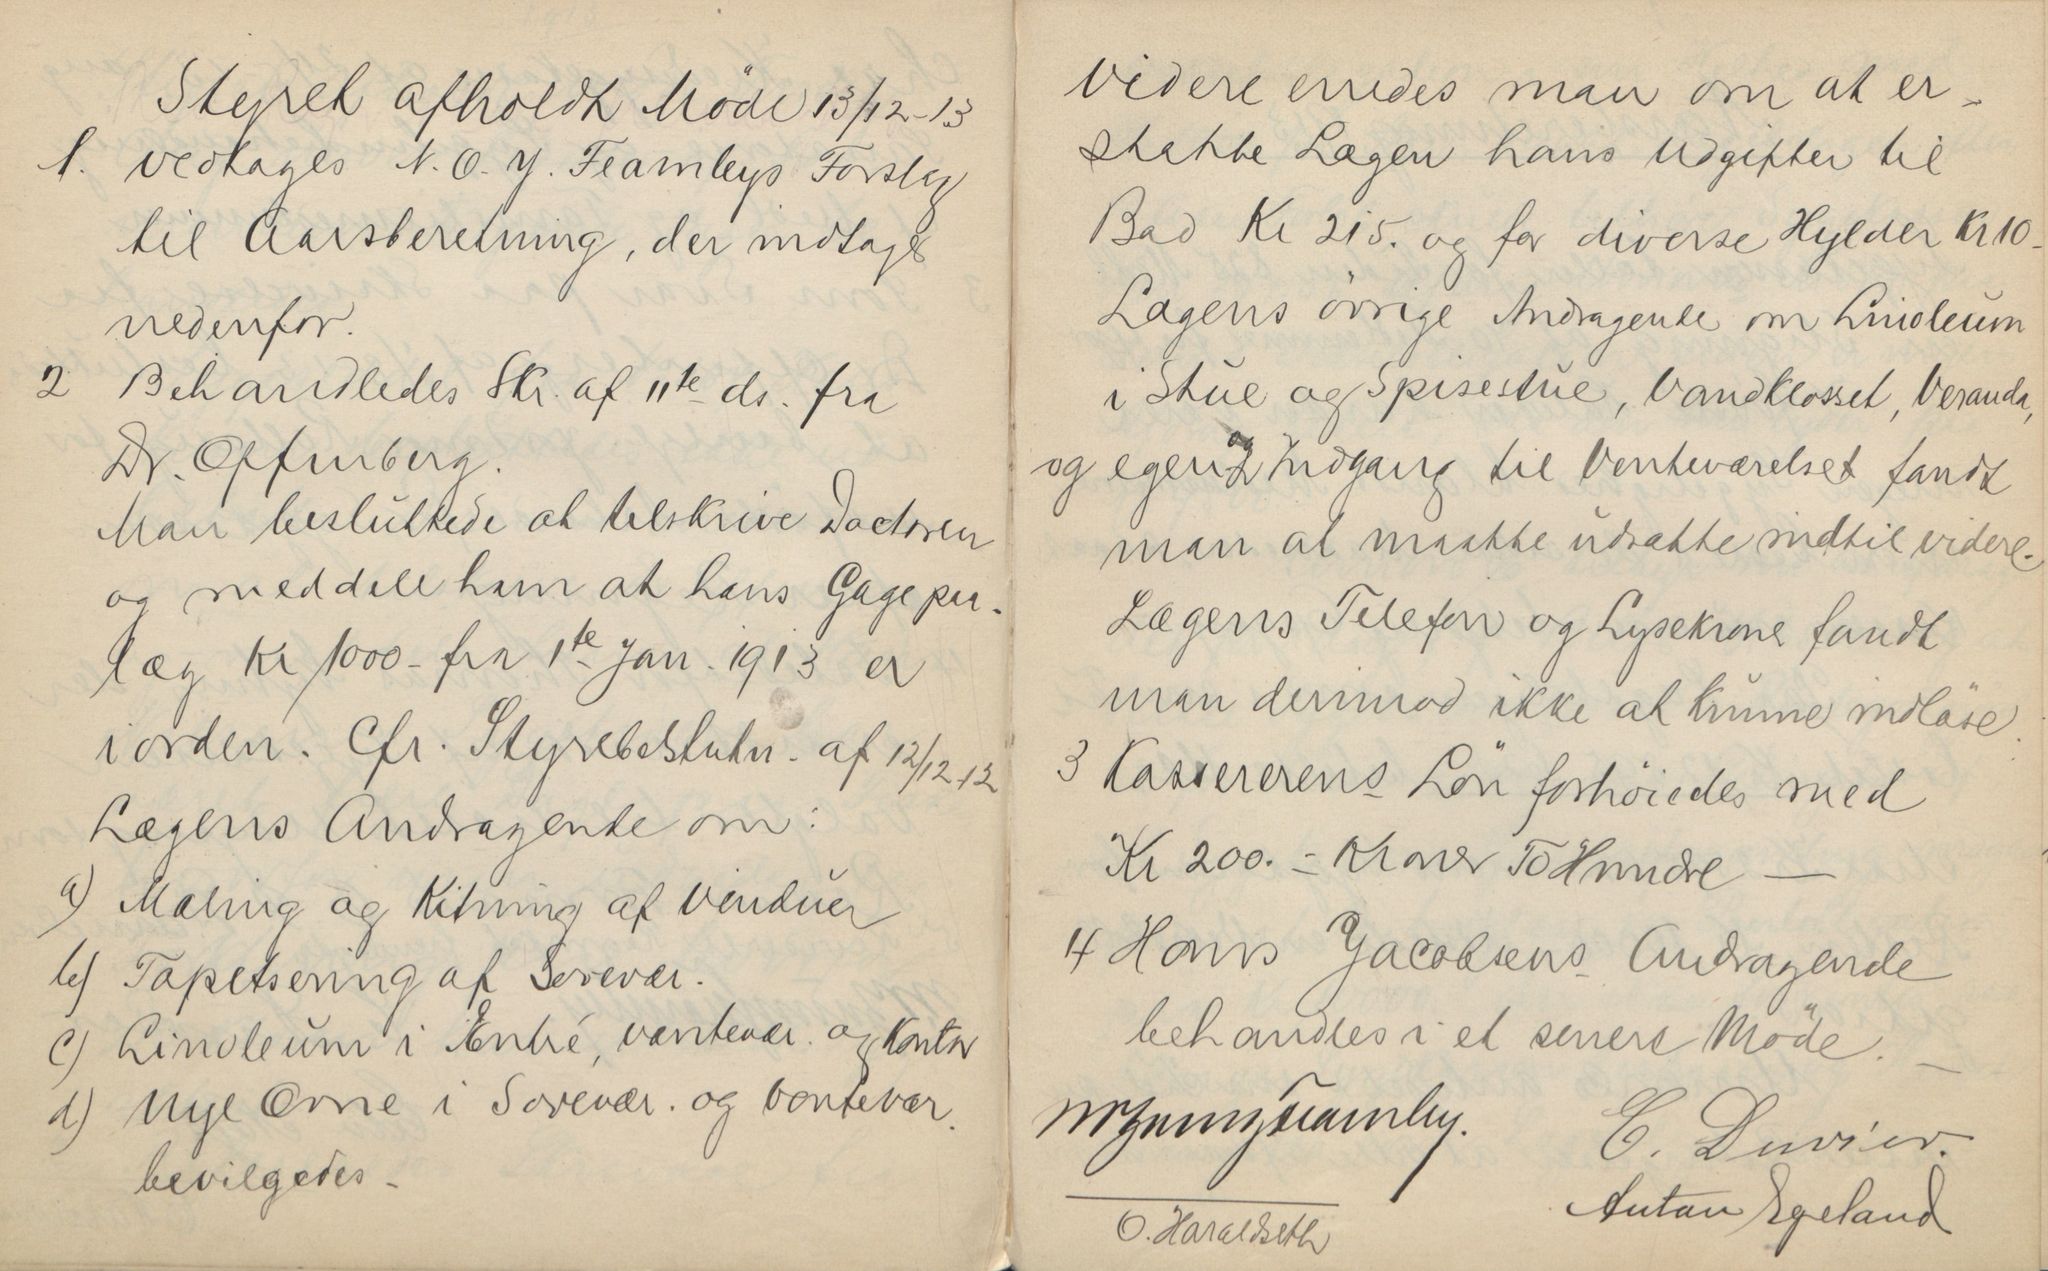 Styret afholdt Möde 13/12-13
1. vedtages N. O. Y. Fearnleys Forslag
til Aarsberetning, der indtages
nedenfor.
2 Behandledes Skr. af 11te ds. fra
Dr.
Man besluttede at tilskrive Doctoren
og meddele ham at hans Gage paa-
læg Kr 1000- fra 1te Jan. 1913 er
i orden. Cfr. Styrebeslutn. af 12/12-12
Lægens Andragende om:
a) Maling og Kitning af Vinduer
b) Tapetsering af Sovevær.
c) Linoleum i Entré, ventevær. og Kontor
d) Nye Ovne i Sovevær. og ventevær.
bevilgedes -
Videre enedes man om at er-
statte Lægen hans Udgifter til
Bad Kr 215. og for diverse Hylder Kr 10-
Lægens övrige Andragende om Linoleum
i Stue og Spisestue, Vandklosset, Veranda,
og egen Indgang til Venteværelset fandt
man at maatte udsætte indtil videre.
Lægens Telefon og Lysekrone fandt
man derimod ikke at kunne indlöse.
3 Kassererens Lön forhöiedes med
Kr 200. - Kroner To Hundre —
4 Hans Jacobsens Andragende
behandles i et senere Möde. -
Fearnley.
E. Duvier.
O. Haraldseth
Anton Egeland